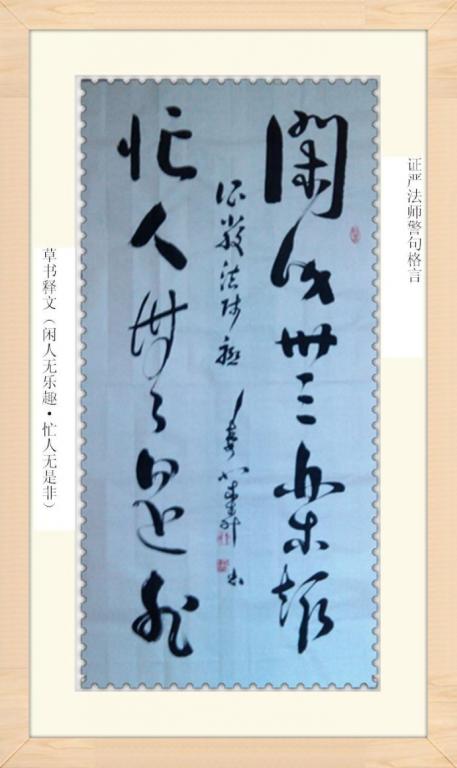 证严法师警句格言
閑人無樂趣
证严法师
忙人無是非
草书释文（闲人无乐趣•忙人无是非）